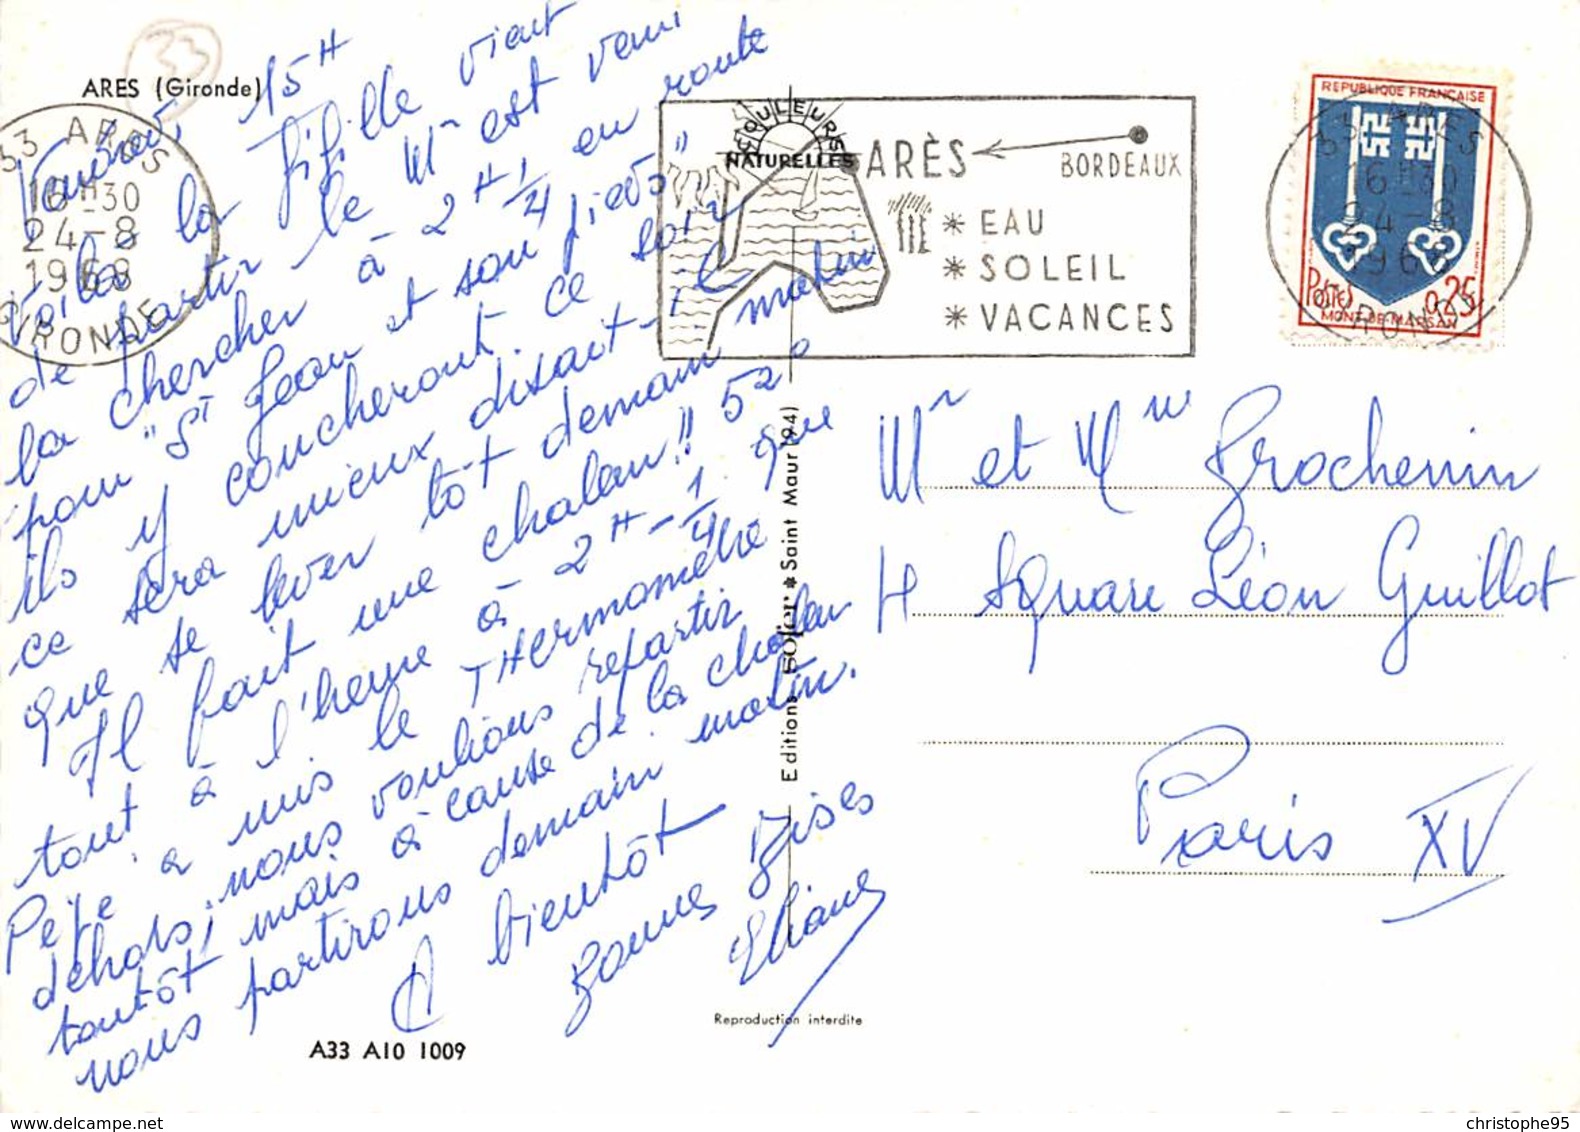 ARES (Gironde)
33
33 ARES
16H30
24-8
1968
GIRONDE
COULEURS
NATURELLES
ARÈS
BORDEAUX
* EAU
* SOLEIL
* VACANCES
REPUBLIQUE FRANÇAISE
POSTES 0,25
MONT-DE-MARSAN
33 ARES
16H30
24-8
1968
GIRONDE
Vendredi, 15H
Voilà la fifille vient
de partir le Mr est venu
la chercher à 2H 1/4 en route
pour "St Jean et son pieds"
ils y coucheront ce soir
ce sera mieux disait-il
que se lever tôt demain matin
Il fait une chaleur!! 52°
tout à l'heure à 2H-1/4 que
Pépé a mis le THermomètre
dehors; nous voulions repartir
tantôt, mais à cause de la chaleur
nous partirons demain matin.
A bientôt
Bonnes Bises
Eliane
Editions * Saint Maur (94)
Mr et Mme Prochenin
4 Square Léon Guillot
Paris XV
Reproduction interdite
A33 A10 1009
christophe95